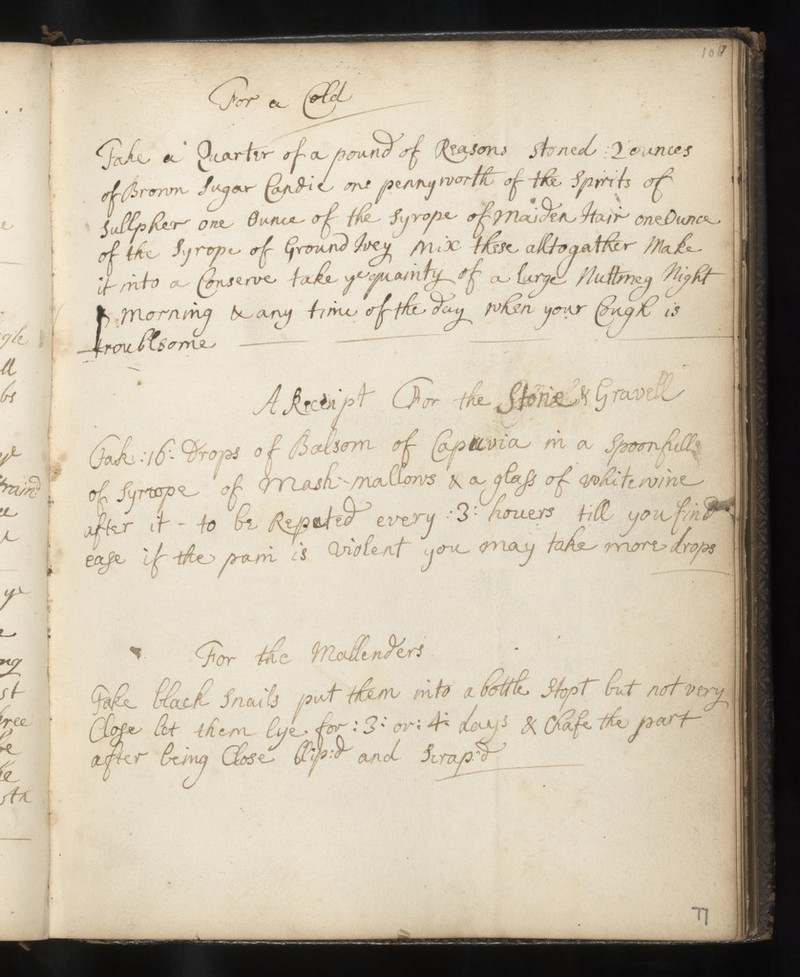 108
For a Cold
Take a Quarter of a pound of Reasons stoned : 2 ounces
of Brown Sugar Candie one pennyworth of the Spirits of
Sullpher one Ounce of the Syrope of Maiden Hair one Ounce
of the Syrope of Ground Ivey Mix these altogather Make
it into a Conserve take ye quainty of a large Nuttmeg Night
Morning & any time of the day when your Cough is
troublsome
A Receipt For the Stone & Gravell
Tak :16: Drops of Balsom of Capuvia in a Spoonfull
of Syrrope of Mash-mallows & a glass of white wine
after it - to be Repeted every :3: houers till you find
ease if the pain is Violent you may take more drops
For the Mallenders
Take black Snails put them into a bottle Stopt but not very
Close let them lye for :3: or: 4: days & Chafe the part
after being Close Clip:d and Scrap:d
77